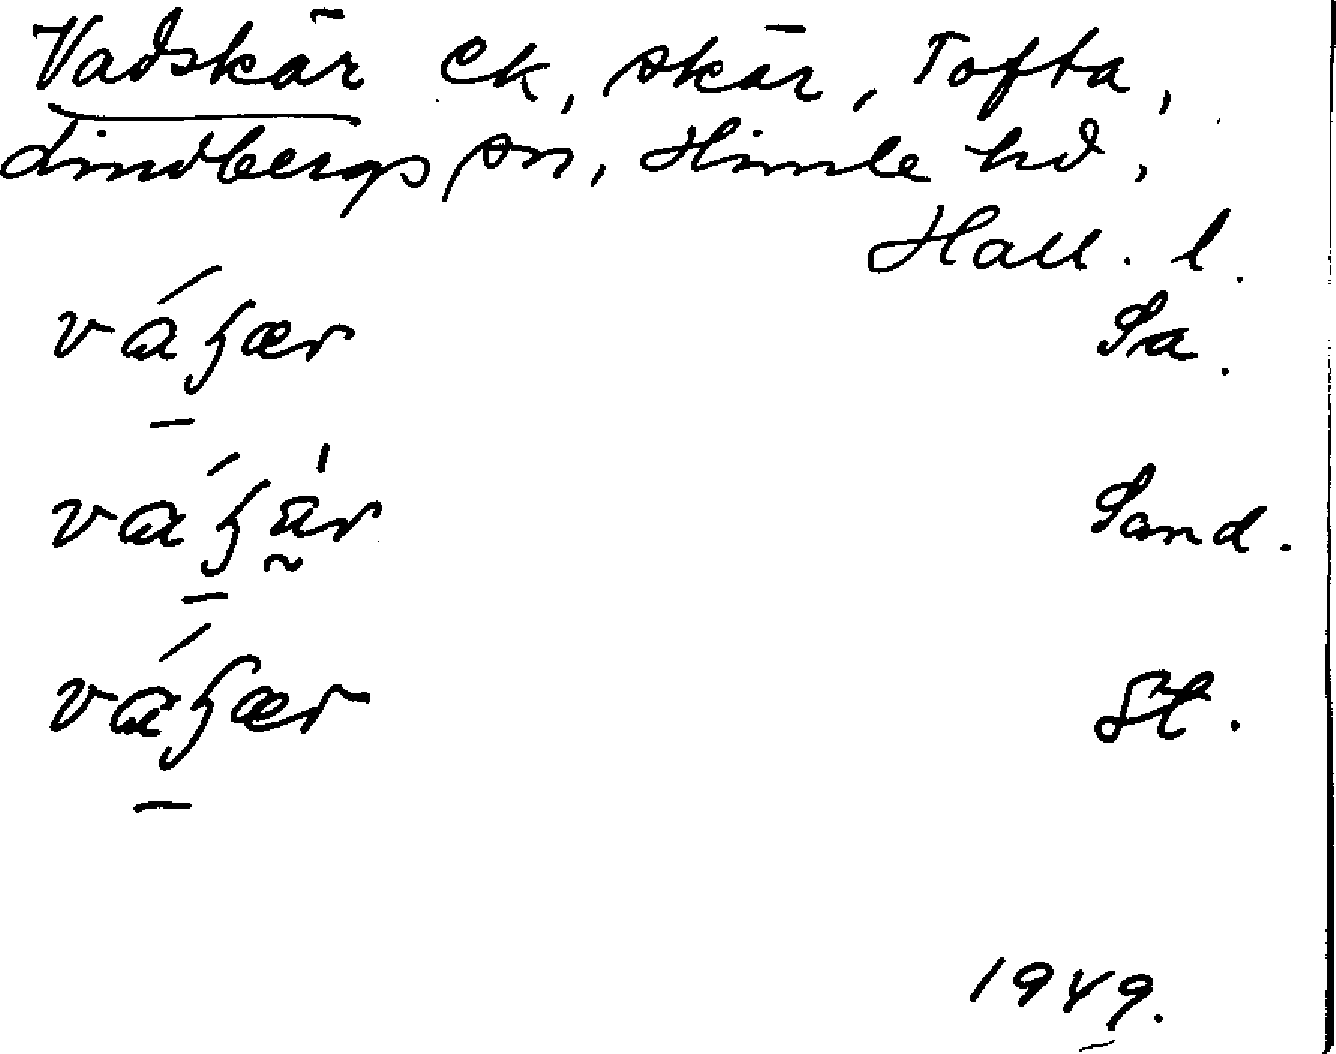 Vadskär ek, skär, Tofta,
Lindbergs sn, Himle hd,
Hall. l.
váʒær Sa.
váʒär Sand.
váʒær St.
1949.